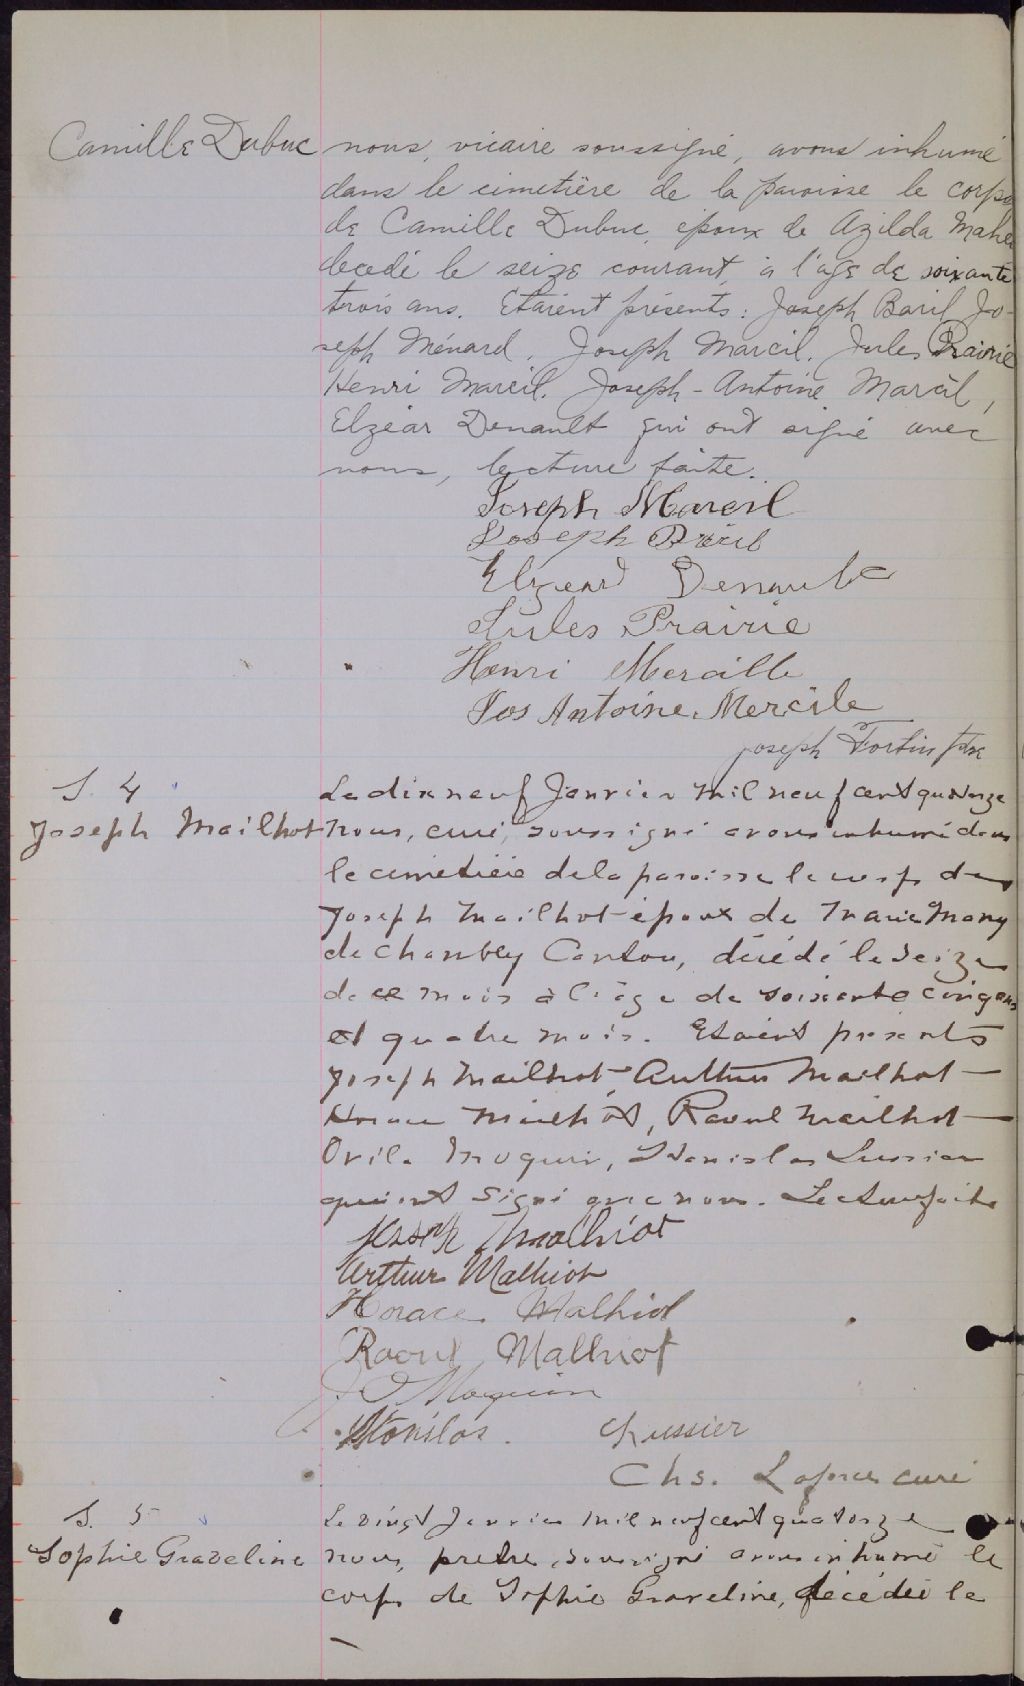 Camille Dubuc
nous, vicaire soussigné, avons inhumé
dans le cimetière de la paroisse le corps
de Camille Dubuc, époux de Azilda Maheu
decedé le seize courant, à l'age de soixante
trois ans. Etaient présents: Joseph Baril Jo-
seph Ménard, Joseph Marcil, Jules Prairie
Henri Marcil, Joseph-Antoine Marcil,
Elzéar Denault qui ont signé avec
nous, lecture faite.
Joseph Marcil
Joseph
Elzear Denault
Jules Prairie
Henri Mercille
Jos Antoine Mercile
Joseph Fortin ptre
S. 4
Joseph Mailhot
Le dix neuf Janvier mil neuf cent quatorze
nous, curé, soussigné avons inhumé dans
le cimetière de la paroisse le corps de
Joseph Mailhot époux de Marie Mony
de Chambly Canton, décédé le seize
de ce mois à l'âge de soixante cinq ans
et quatre mois. Etaient présents
Joseph Mailhot, Arthur Mailhot
Horace Mailhot, Raoul Mailhot
Ovila Moquin, Stanislas Lussier
qui ont signé avec nous. Lecture faite
Joseph Malhiot
Arthur Malhiot
Horace Malhiot
Raoul Malhiot
J O Moquin
Stanislas Lussier
Chs. curé
S. 5
Sophie Graveline
Le vingt Janvier mil neuf cent quatorze
nous, prêtre, soussigné avons inhumé le
corps de Sophie Graveline, décédée le